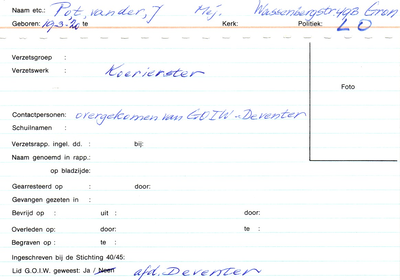 Naam etc.: Pot, van der, J Mej. Wassenbergstr. 49B Gron
Geboren: 19-3-'20 te Kerk: Politiek: LO
Verzetsgroep :
Verzetswerk : Koerierster
Foto
Contactpersonen: overgekomen van GOIW - Deventer
Schuilnamen :
Verzetsrapp. ingel. dd. : bij:
Naam genoemd in rapp.:
op bladzijde:
Gearresteerd op : door:
Gevangen gezeten in :
Bevrijd op : uit : door:
Overleden op: door: te :
Begraven op : te :
Ingeschreven bij de Stichting 40/45:
Lid G.O.I.W. geweest: Ja / Neen afd. Deventer